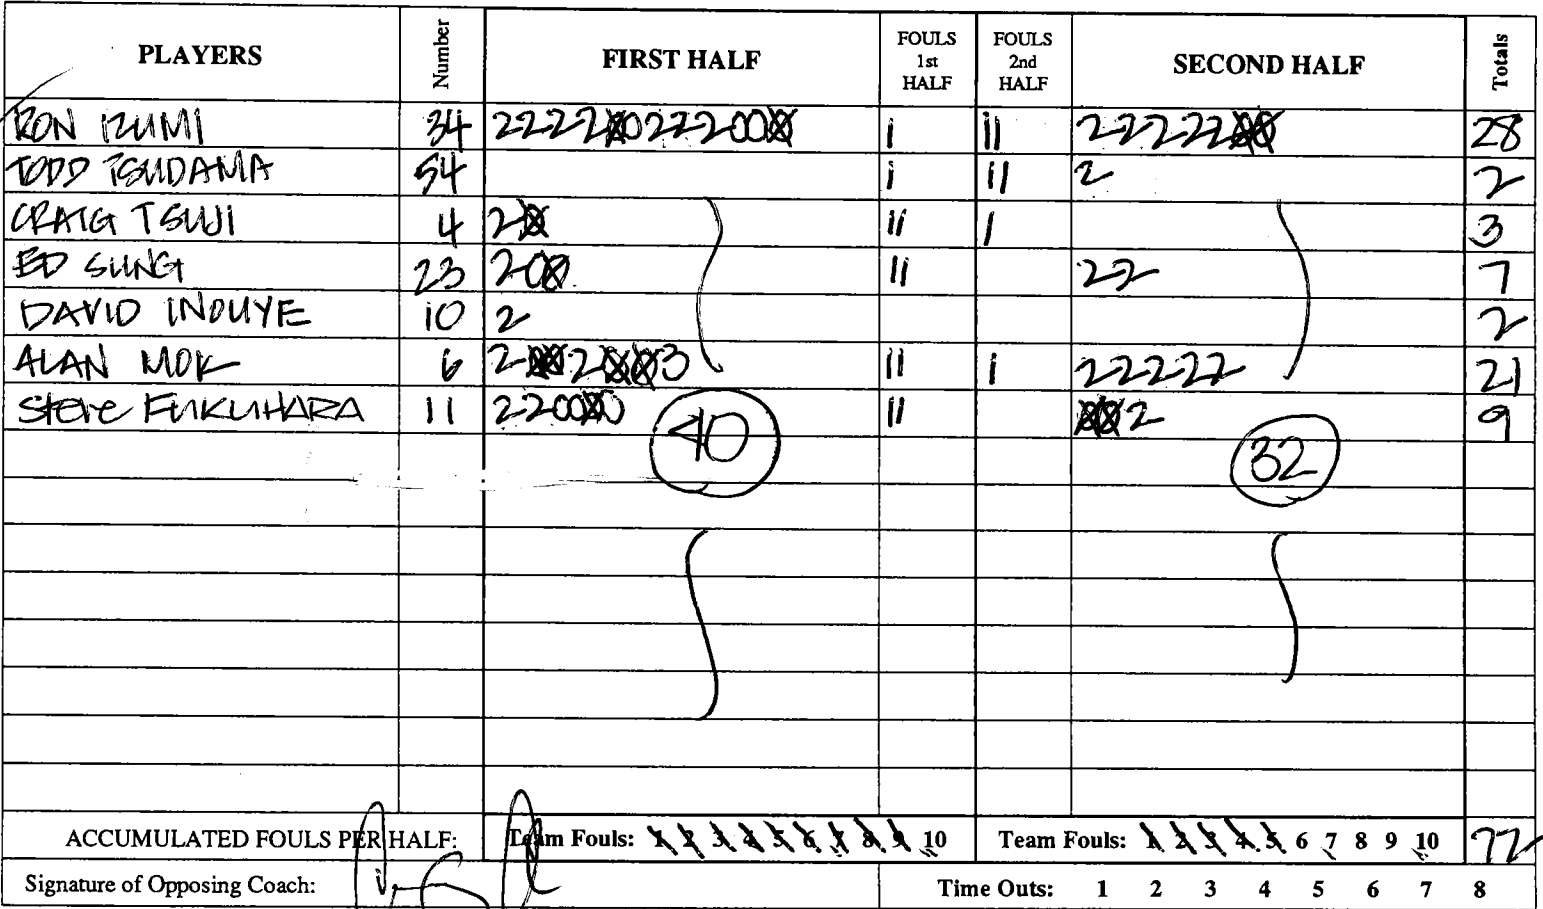 PLAYERS Number FIRST HALF FOULS 1st HALF FOULS 2nd HALF SECOND HALF Totals
RON IZUMI 34 2222⊗022200⊗ I II 22222⊗⊗ 28
TODD TSUDAMA 54 I II 2 2
CRAIG TSUJI 4 2⊗ II I 3
ED SUNG 23 20⊗ II 22 7
DAVID INOUYE 10 2 2
ALAN MOK 6 2⊗⊗2⊗⊗⊗3 II I 22222 21
Steve FUKUHARA 11 2200⊗0 II ⊗⊗2 9
40 32
ACCUMULATED FOULS PER HALF: Team Fouls: 1 2 3 4 5 6 7 8 9 10 Team Fouls: 1 2 3 4 5 6 7 8 9 10 72
Signature of Opposing Coach: Time Outs: 1 2 3 4 5 6 7 8